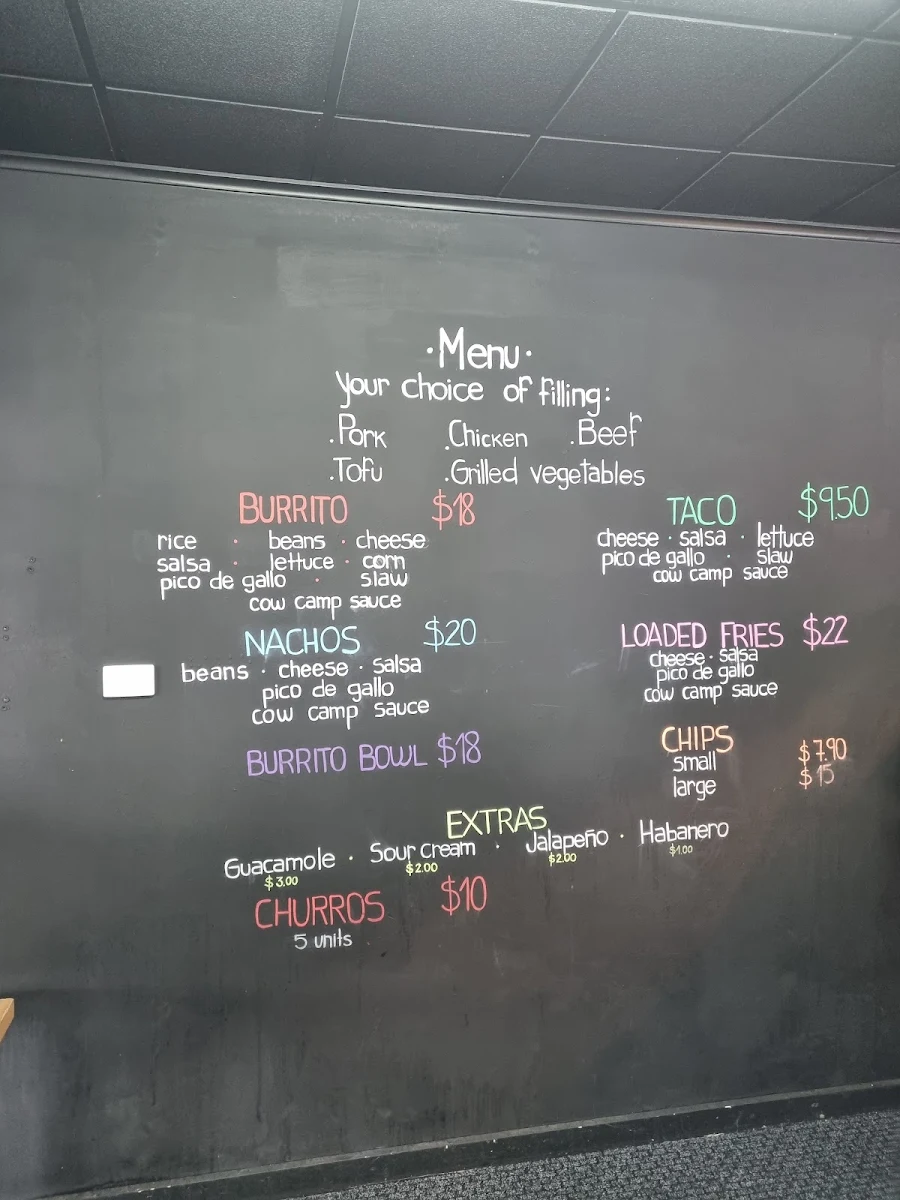 ·Menu·
Your choice of filling:
.Pork .Chicken .Beef
.Tofu .Grilled vegetables
BURRITO $18
rice · beans · cheese
salsa · lettuce · corn
pico de gallo · slaw
cow camp sauce
TACO $9.50
cheese · salsa · lettuce
pico de gallo · slaw
cow camp sauce
NACHOS $20
beans · cheese · salsa
pico de gallo
cow camp sauce
LOADED FRIES $22
cheese · salsa
pico de gallo
cow camp sauce
BURRITO BOWL $18
CHIPS
small $7.90
large $15
EXTRAS
Guacamole · Sour cream · Jalapeño · Habanero
$3.00 $2.00 $2.00 $1.00
CHURROS $10
5 units